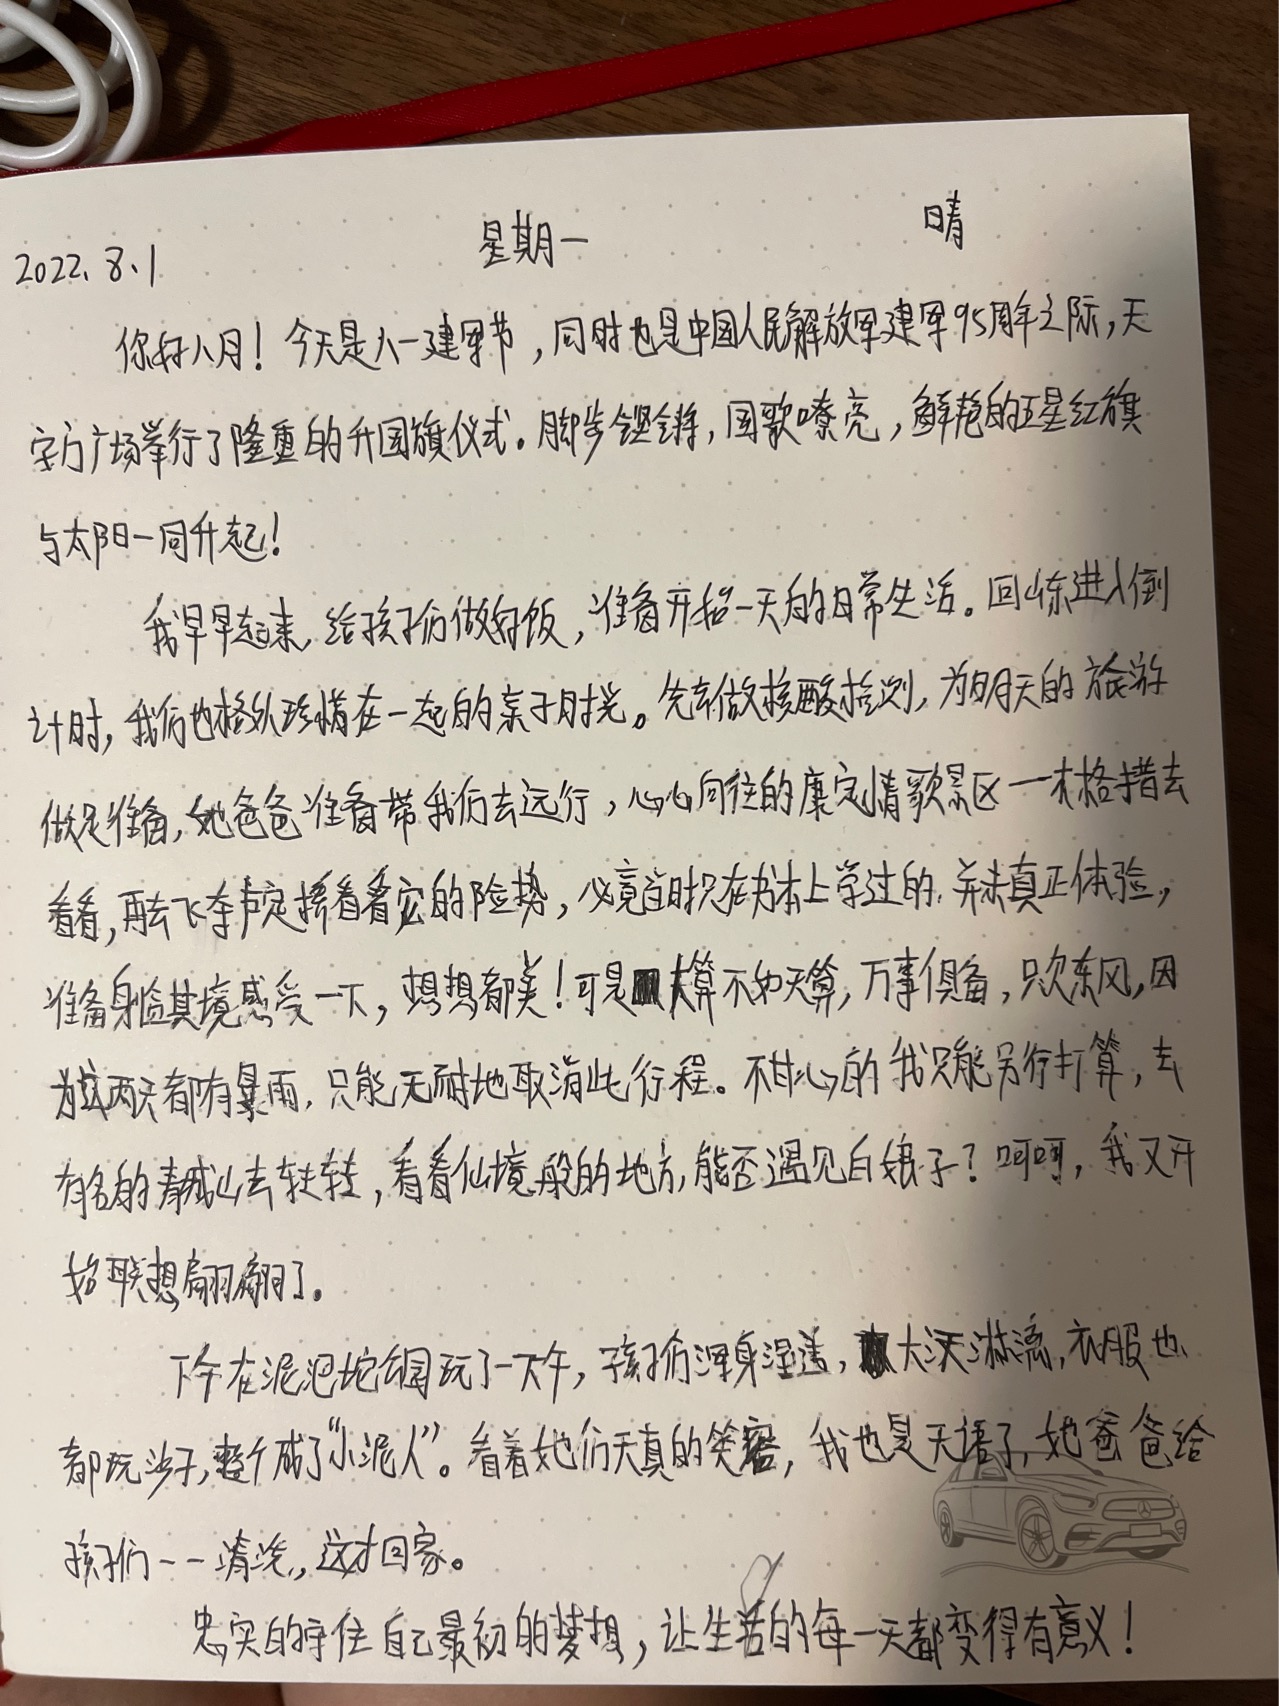 2022.8.1 星期一 晴
你好八月！今天是八一建军节，同时也是中国人民解放军建军95周年之际，天
安门广场举行了隆重的升国旗仪式。脚步铿锵，国歌嘹亮，鲜艳的五星红旗
与太阳一同升起！
我早早起来，给孩子们做好饭，准备开始一天的日常生活。回山东进入倒
计时，我们也格外珍惜在一起的亲子时光。先去做核酸检测，为明天的旅游
做足准备，她爸爸准备带我们去远行，心心向往的康定情歌景区一木格措去
看看，再去飞夺泸定桥看看它的险势，必竟当时只在书本上学过的，并未真正体验，
准备身临其境感受一下，想想都美！可是人算不如天算，万事俱备，只欠东风，因
为这两天都有暴雨，只能无耐地取消此行程。不甘心的我只能另行打算，去
有名的青城山去转转，看看仙境般的地方，能否遇见白娘子？呵呵，我又开
始联想翩翩了。
下午在泥巴坨公园玩了一下午，孩子们浑身湿透，大汗淋漓，衣服也
都玩沙子，整个成了“小泥人”。看着她们天真的笑容，我也是无语了，她爸爸给
孩子们一一清洗，这才回家。
忠实的守住自己最初的梦想，让生活的每一天都变得有意义！